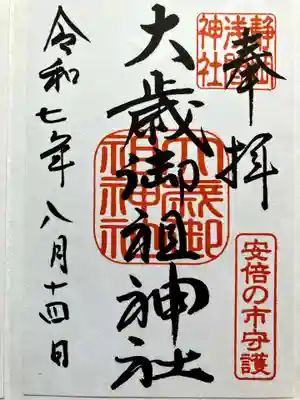 奉拝
静岡浅間神社
安倍の市守護
大歳御祖神社
大歳御祖神社
令和七年八月十四日